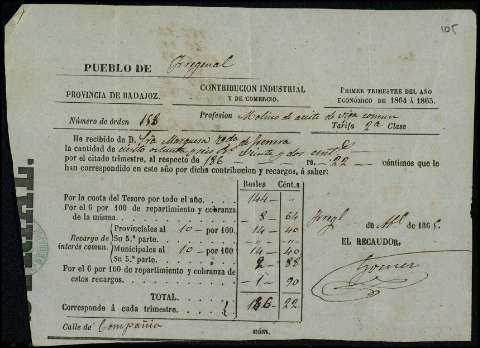 105
PUEBLO DE Fregenal
PROVINCIA DE BADAJOZ.
CONTRIBUCION INDUSTRIAL
Y DE COMERCIO.
PRIMER TRIMESTRE DEL AÑO
ECONÓMICO DE 1864 Á 1865.
Número de órden 156
Profesion Molino de aceite de viga comun
Tarifa 2ª Clase
He recibido de D. Sra Marquesa
la cantidad de ciento ochenta y seis Rs. veinte y dos cent
por el citado trimestre, al respecto de 186 rs. 22 céntimos que le
han correspondido en este año por dicha contribucion y recargos, á saber:
Reales Cént.s
Por la cuota del Tesoro por todo el año. 144
Por el 6 por 100 de repartimiento y cobranza
de la misma. 8 64
Recargo de interés comun.
Provinciales al 10 por 100 14 40
Su 5.ª parte.
Municipales al 10 por 100 14 40
Su 5.ª parte. 2 88
Por el 6 por 100 de repartimiento y cobranza de
estos recargos. 1 90
TOTAL.
Corresponde á cada trimestre. 186 22
Calle de Compañia núm.
de 1865.
EL RECAUDOR.